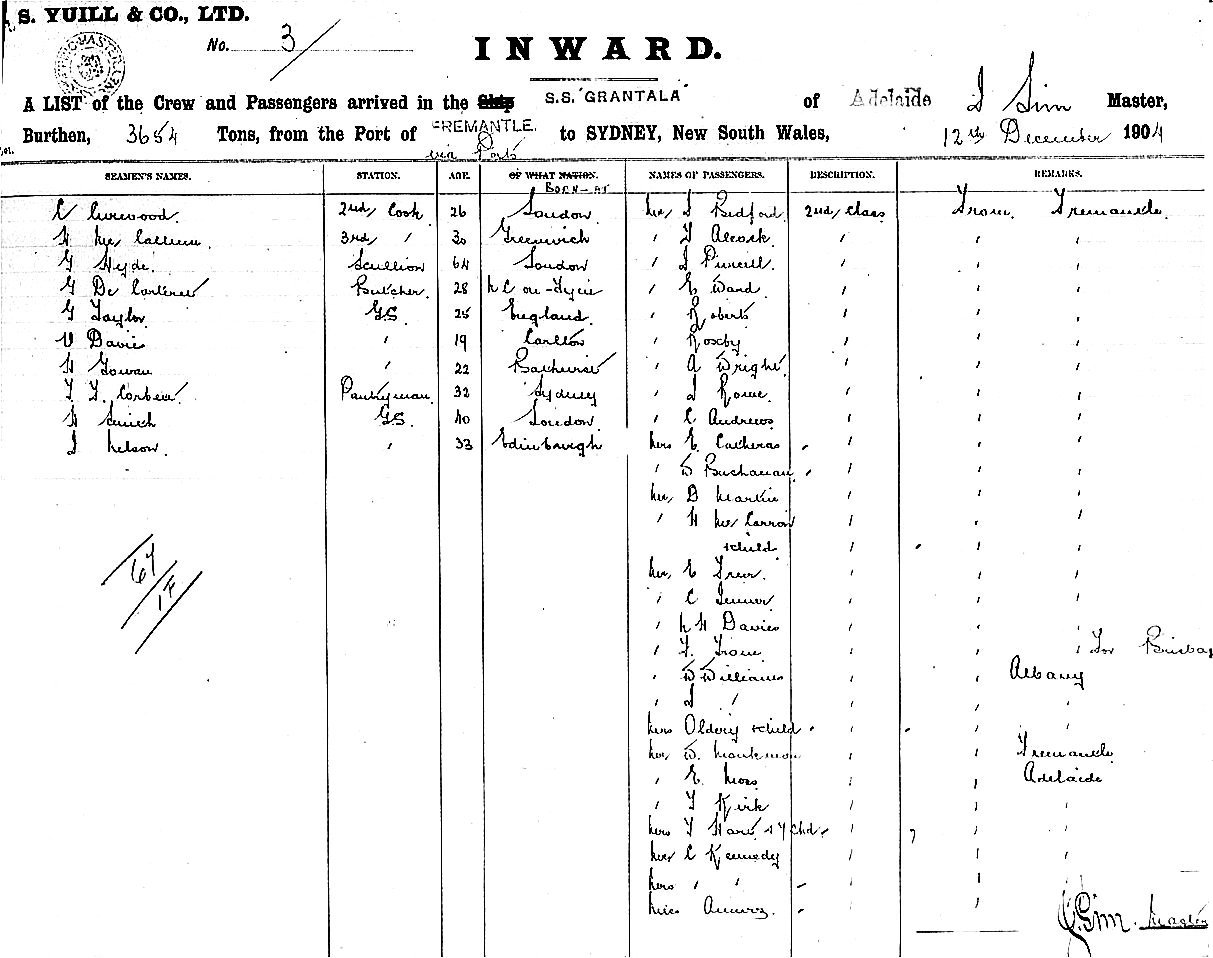 S. YUILL & CO., LTD.
No. 3
INWARD.
A LIST of the Crew and Passengers arrived in the Ship S.S. "GRANTALA" of Adelaide J Sim Master,
Burthen, 3654 Tons, from the Port of FREMANTLE. via Ports to SYDNEY, New South Wales, 12th December 1904
SEAMEN'S NAMES. STATION. AGE. OF WHAT NATION. BORN-AT NAMES OF PASSENGERS. DESCRIPTION. REMARKS.
2nd Cook 26 London Mr J Bedford 2nd Class From Fremantle
H Mc Callum 3rd " 30 Greenwich " T Alcock " " "
G Hyde Scullion 64 London " J Purcell " " "
G De Butcher 28 N C on-Tyne " E Ward " " "
G Taylor G.S. 25 England " Roberts " " "
V Davis " 19 Carlton " Roxby " " "
H Gowan " 22 Bathurst " A Wright " " "
T. J. Corbett Pantryman 32 Sydney " J Rowe " " "
H Smith G.S. 40 London " C Andrews " " "
J Nelson " 33 Edinburgh Mrs E " " "
" D Buchanan " " "
Mr D Martin " " "
" H Mc Carron " " "
& child " " "
Mr E " " "
" C " " "
" N H Davies " " "
" F. " " " For Brisba
" W Williams " " Albany
" J " " " "
Mrs & child " " "
Mr W. " " Fremantle
" E Moss " " Adelaide
" T Kirk " " "
Mrs T & 4 Chd " " "
Mr C Kennedy " " "
Mrs " " " " "
Miss " " "
67/17
J. Sim. Master